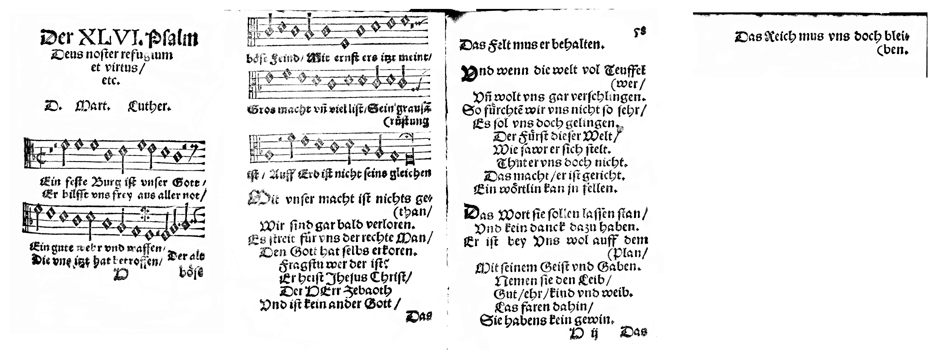 Der XLVI. Psalm
Deus noster refugium
et virtus/
etc.
D. Mart. Luther.
Ein feste Burg ist vnser Gott/
Er hilfft vns frey aus aller not/
Ein gute wehr vnd waffen/
Die vns itzt hat betroffen/ Der alt
V böse
böse Feind/ Mit ernst ers itzt meint/
Gros macht vñ viel list/ Sein grausã
(rüstung
ist/ Auff Erd ist nicht seins gleichen
Mit vnser macht ist nichts ge-
(than/
Wir sind gar bald verloren.
Es streit für vns der rechte Man/
Den Gott hat selbs erkoren.
Fragstu wer der ist?
Er heist Jhesus Christ/
Der HErr Zebaoth
Vnd ist kein ander Gott/
Das
58
Das Felt mus er behalten.
Vnd wenn die welt vol Teuffel
(wer/
Vñ wolt vns gar verschlingen.
So fürchtẽ wir vns nicht so sehr/
Es sol vns doch gelingen.
Der Fürst dieser Welt/
Wie sawr er sich stelt.
Thut er vns doch nicht.
Das macht/ er ist gericht.
Ein wörtlin kan jn fellen.
Das Wort sie sollen lassen stan/
Vnd kein danck dazu haben.
Er ist bey Vns wol auff dem
(Plan/
Mit seinem Geist vnd Gaben.
Nemen sie den Leib/
Gut/ ehr/ kind vnd weib.
Las faren dahin/
Sie habens kein gewin.
V ij Das
Das Reich mus vns doch blei-
(ben.